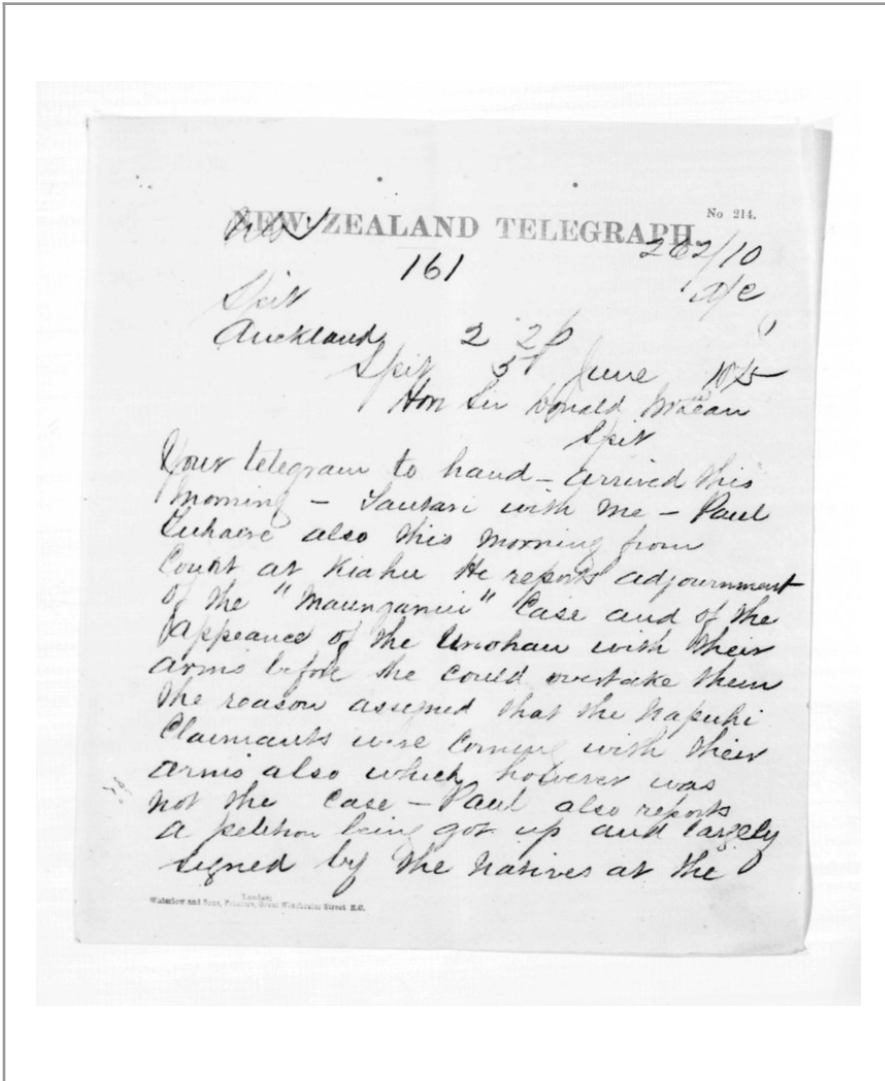 No 214.
NEW ZEALAND TELEGRAPH.
262/10
161
Spit
Auckland 2 20
Spit 5 June 1875
Hon Sir Donald McLean
Spit
Your telegram to hand – arrived this
morning – Tautari with me – Paul
Tuhaere also this morning from
Court at Kiahu He reports adjournment
of the "Maunganui" Case and of the
appeance of the Uriohau with their
arms before he could overtake them
The reason assigned that the Napuhi
Claimants were coming with their
arms also which however was
not the case – Paul also reports
a petition being got up and largely
signed by the Natives at the
London:
Waterlow and Sons, Printers, Great Winchester Street E.C.